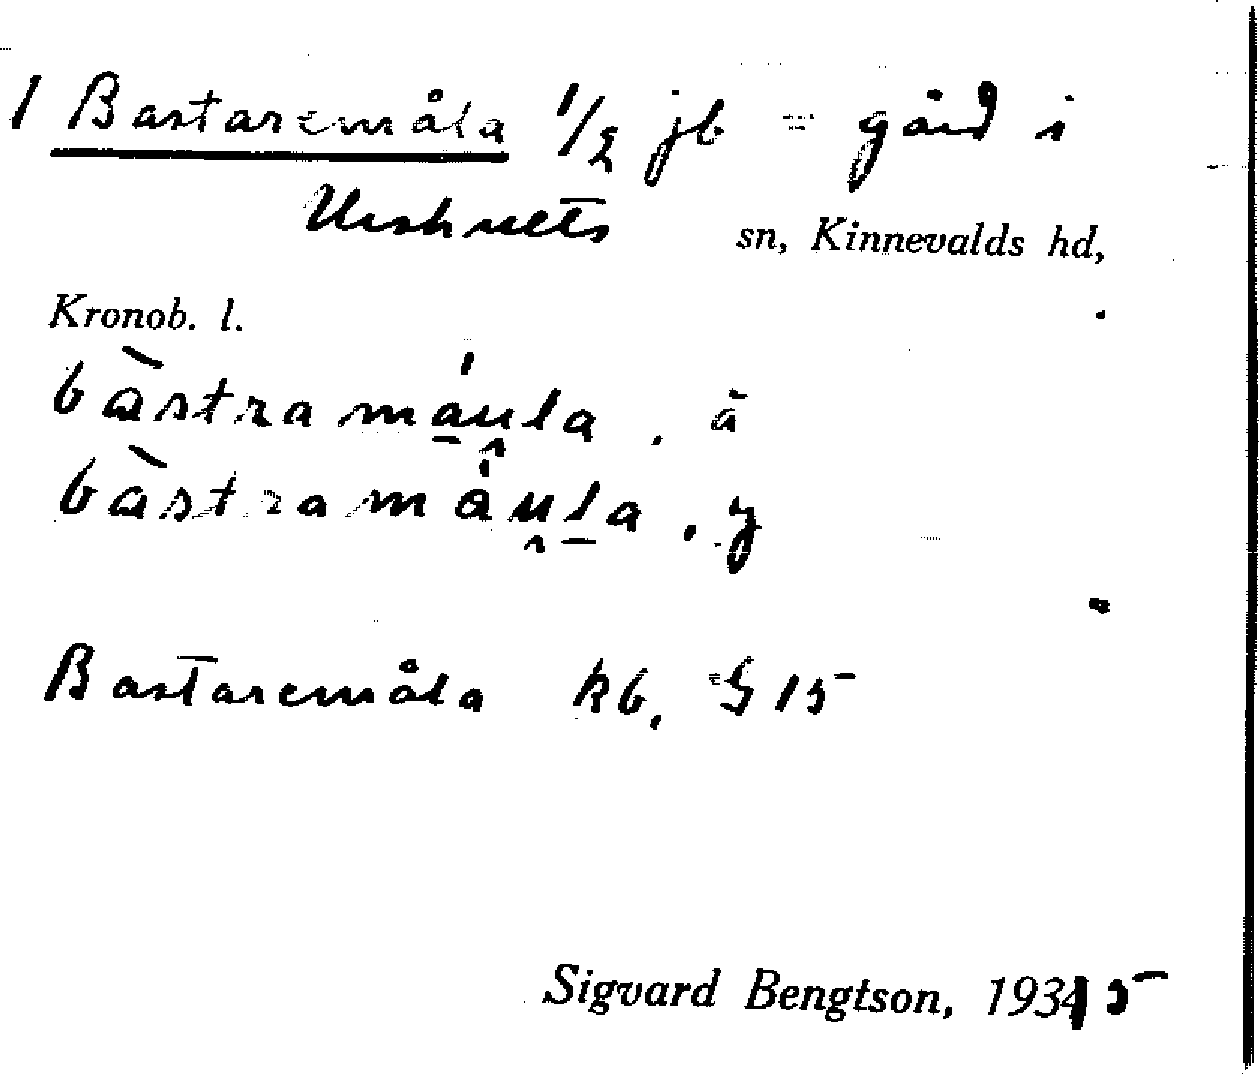 1 Bastaremåla 1/2 jb = gård i
Urshults sn, Kinnevalds hd,
Kronob. l.
bàstramáu̯la . ä
bàstramáu̯la . y
Bastaremåla kb. G 15
Sigvard Bengtson, 1935